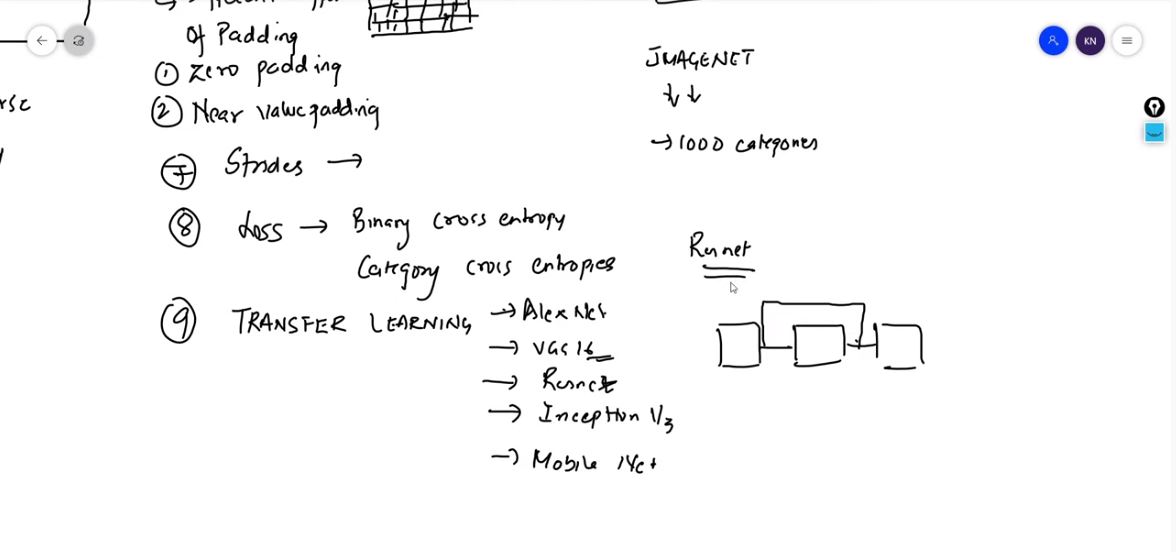 Of Padding
① Zero padding
② Near Value padding
⑦ Strides →
⑧ Loss → Binary cross entropy
Category cross entropies
⑨ TRANSFER LEARNING → AlexNet
→ VGG 16
→ Resnet
→ Inception V3
→ Mobile Net
IMAGENET
↓ ↓
→ 1000 categories
Resnet
KN